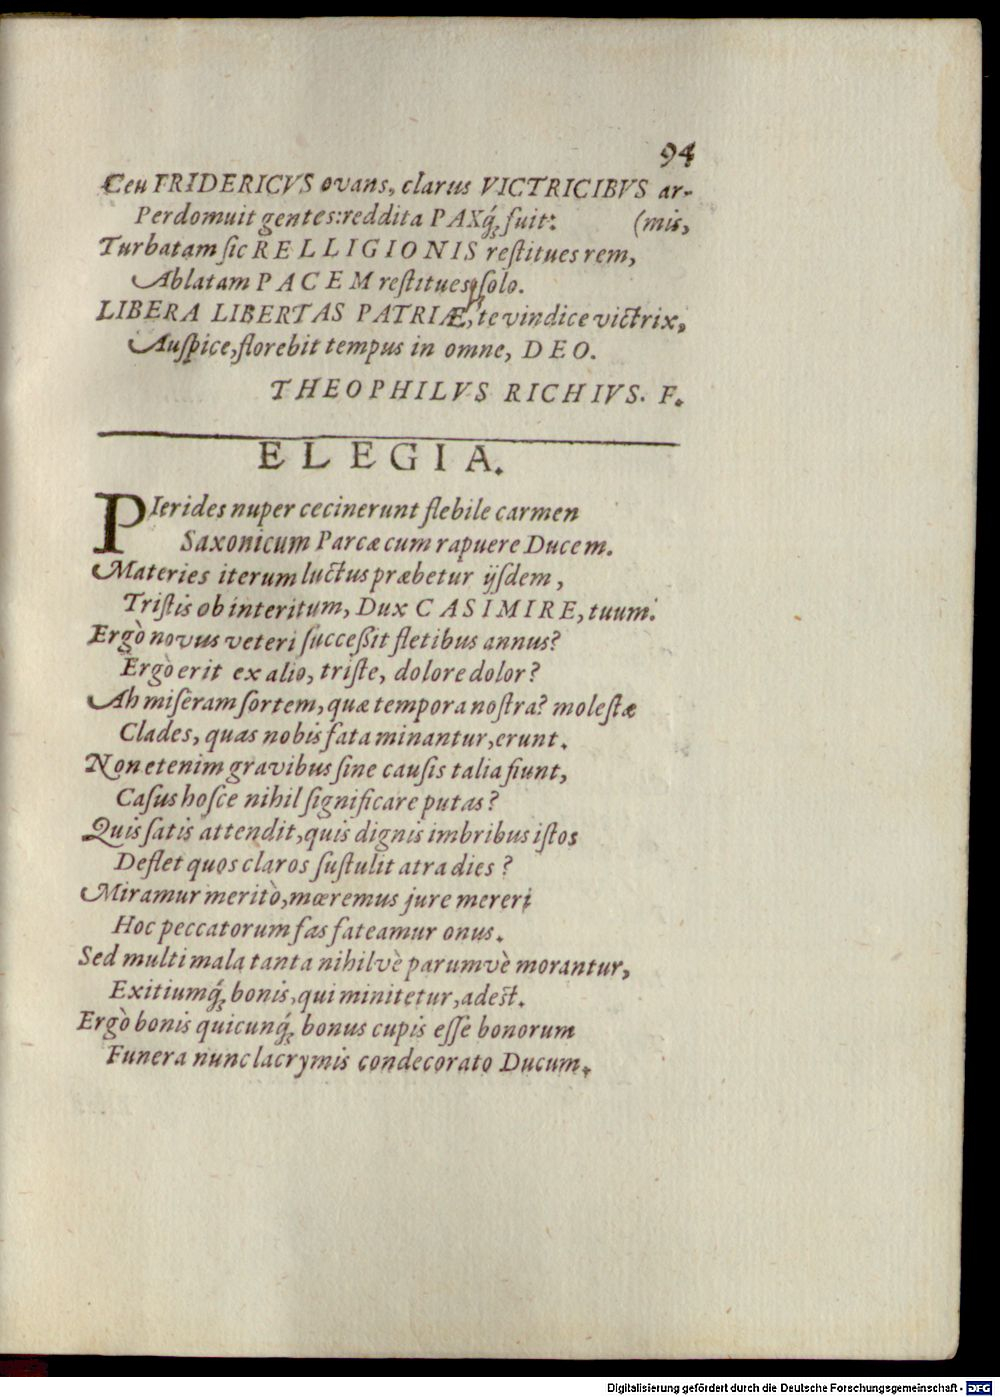 94
Ceu FRIDERICVS ovans, clarus VICTRICIBVS ar-
Perdomuit gentes: reddita PAXq́; fuit: (mis,
Turbatam ſic RELLIGIONIS reſtitues rem,
Ablatam PACEM reſtituesq́; ſolo.
LIBERA LIBERTAS PATRIÆ, te vindice victrix,
Auſpice, florebit tempus in omne, DEO.
THEOPHILVS RICHIVS. F.
ELEGIA.
PIerides nuper cecinerunt flebile carmen
Saxonicum Parcæ cum rapuere Ducem.
Materies iterum luctus præbetur ijſdem,
Triſtis ob interitum, Dux CASIMIRE, tuum.
Ergò novus veteri ſucceßit fletibus annus?
Ergò erit ex alio, triſte, dolore dolor?
Ah miſeram ſortem, quæ tempora noſtra? moleſtæ
Clades, quas nobis fata minantur, erunt.
Non etenim gravibus ſine cauſis talia fiunt,
Caſus hoſce nihil ſignificare putas?
Quis ſatis attendit, quis dignis imbribus iſtos
Deflet quos claros ſuſtulit atra dies?
Miramur meritò, mœremus jure mereri
Hoc peccatorum fas fateamur onus.
Sed multi mala tanta nihilvè parumvè morantur,
Exitiumq́; bonis, qui minitetur, adest.
Ergò bonis quicunq́; bonus cupis eſſe bonorum
Funera nunc lacrymis condecorato Ducum.
Digitalisierung gefördert durch die Deutsche Forschungsgemeinschaft - DFG